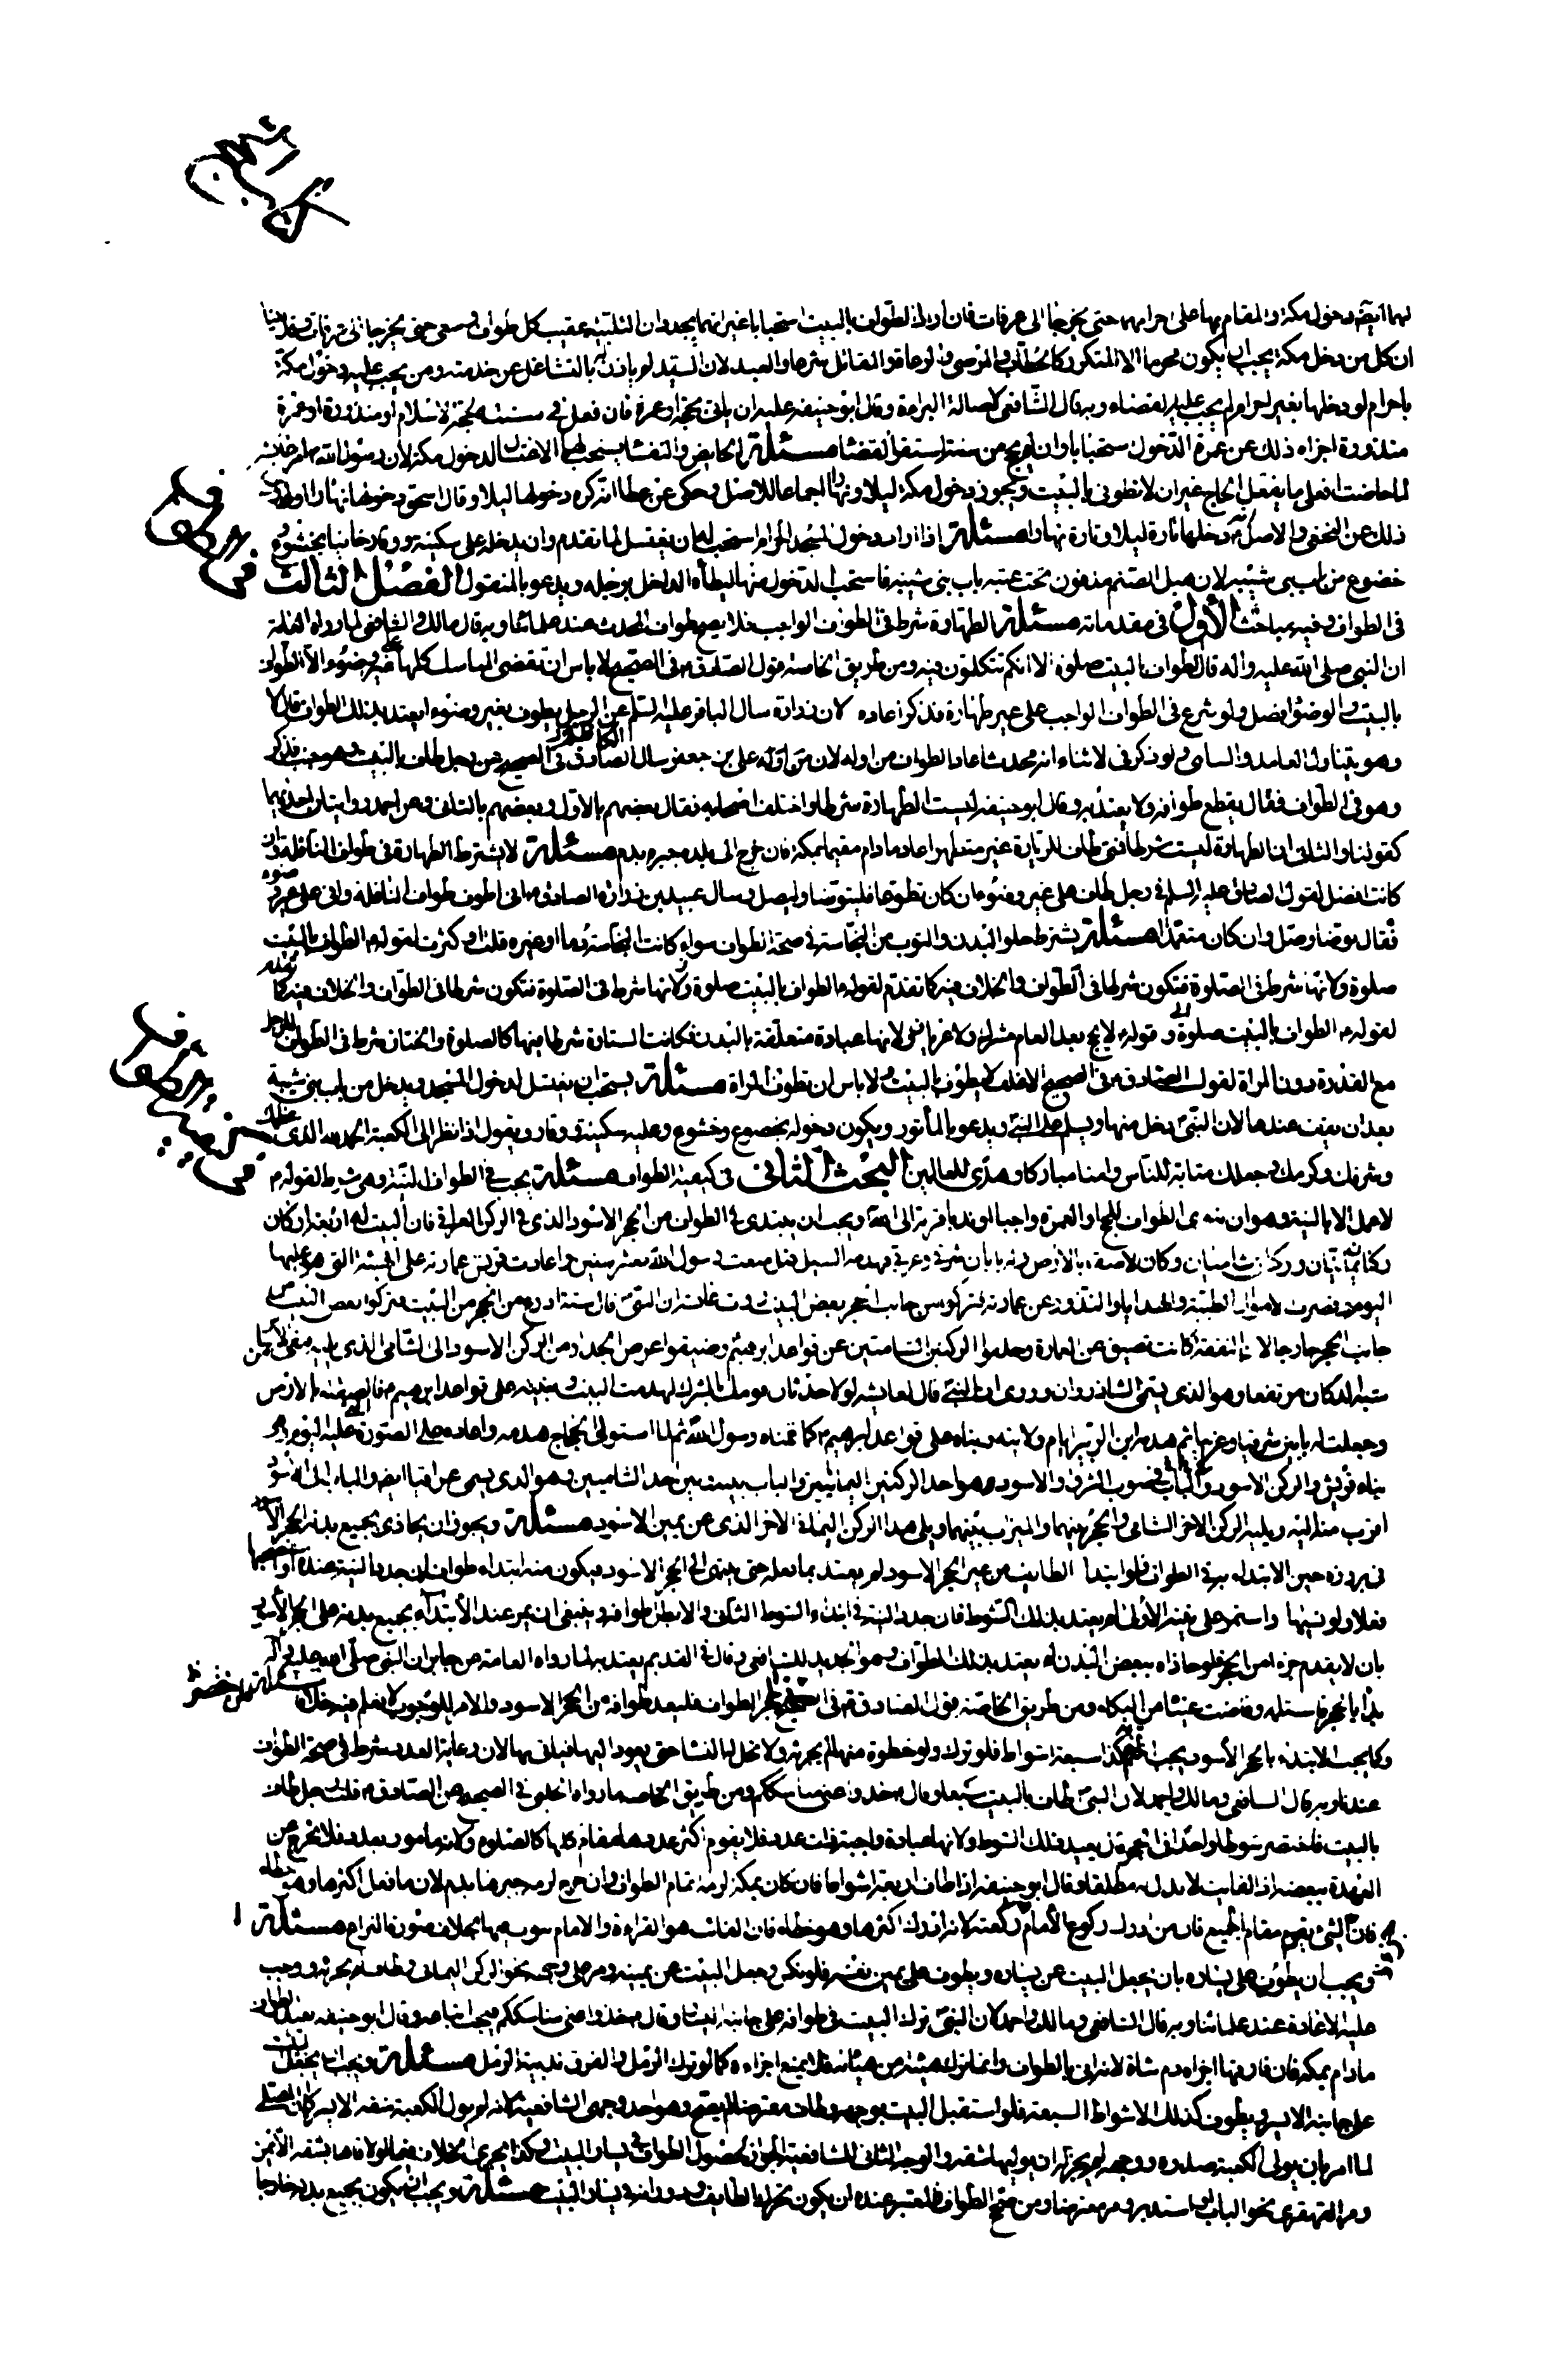 كتاب الحج
لهما ايضا دخول مكة والمقام بها على احرامهما حتى يخرجا الى عرفات فان ارادا الطواف بالبيت استحبابا غير انهما يجددان التلبية عقيب كل طواف وسعى حتى يخرجا الى عرفات وقد بينا
ان كل من دخل مكة يجب ان يكون محرما الا المتكرر كالحطاب والمرضى ولو عاقوا المقاتل شرعا والعبد لان السيد لم ياذن بالتشاغل عن خدمته ومن يجب عليه دخول مكة
باحرام لو دخلها بغير احرام لم يجب عليه القضاء وبه قال الشافعى لاصالة البراءة وقال ابو حنيفة عليه ان ياتى بحجة او عمرة فان فعل فى سنته لحجة الاسلام او منذورة او عمرة
منذورة اجزاه ذلك عن عمرة الدخول استحبابا وان لم يحج من سنته استقر القضا مسئلة الحايض والنفساء يستحب لهما الاغتسال لدخول مكة لان رسول الله ص امر عايشة
لما حاضت افعلى ما يفعل الحاج غير ان لا تطوفى بالبيت ويجوز دخول مكة ليلا ونهارا اجماعا للاصل وحكى عن عطا انه كره دخولها ليلا وقال اسحق دخولها نهارا اولى
ذلك عن النخعى والاصل انه دخلها تارة ليلا وتارة نهارا مسئلة اذا اراد دخول المسجد الحرام استحب له ان يغتسل لما تقدم وان يدخله على سكينة ووقار حافيا بخشوع و
خضوع من باب بنى شيبة لان هبل الصنم مدفون تحت عتبة باب بنى شيبة فاستحب الدخول منها ليطأه الداخل برجله ويدعو بالمنقول الفصل الثالث
فى الطواف وفيه مباحث الاول فى مقدماته مسئلة الطهارة شرط فى الطواف الواجب فلا يصح طواف المحدث عند علمائنا وبه قال مالك والشافعى لما رواه العامة
ان النبى صلى الله عليه واله قال الطواف بالبيت صلوة الا انكم تتكلمون فيه ومن طريق الخاصة قول الصادق ع فى الصحيح لا باس ان تقضى المناسك كلها على غير وضوء الا الطواف
بالبيت والوضوء افضل ولو شرع فى الطواف الواجب على غير طهارة فذكر اعاده لان زرارة سال الباقر عليه السلم عن الرجل يطوف بغير وضوء ايعتد بذلك الطواف قال لا
وهو يتناول العامد والساهى ولو ذكر فى الاثناء انه محدث اعاد الطواف من اوله لان على بن جعفر سال الكاظم ع فى الصحيح عن رجل طاف بالبيت وهو جنب فذكر
وهو فى الطواف فقال يقطع طوافه ولا يعتد به وقال ابو حنيفة ليست الطهارة شرطا واختلف اصحابه فقال بعضهم بالاول وبعضهم بالثانى وعن احمد روايتان احديهما
كقولنا والثانى ان الطهارة ليست شرطا فمتى طاف للزيارة غير متطهر اعاد ما دام مقيما بمكة فان خرج الى بلده جبره بدم مسئلة لا يشترط الطهارة فى طواف النافلة وان
كانت افضل لقول الصادق عليه السلم فى رجل طاف على غير وضوء ان كان تطوعا فليتوضا وليصل وسال عبيد بن زرارة الصادق ع انى اطوف طواف النافلة وانى على غير وضوء
فقال توضا وصل وان كان متعمدا مسئلة يشترط خلو البدن والثوب من النجاسة فى صحة الطواف سواء كانت النجاسة دما او غيره قلت او كثرت لقوله ع الطواف بالبيت
صلوة ولانها شرط فى الصلوة فتكون شرطا فى الطواف والخلاف فيه كما تقدم لقوله ع الطواف بالبيت صلوة ولانها شرط فى الصلوة فتكون شرطا فى الطواف والخلاف فيه كما تقدم
لقوله ع الطواف بالبيت صلوة وقوله ع لا يحج بعد العام مشرك ولا عريان ولانها عبادة متعلقة بالبدن فكانت الستارة شرطا فيها كالصلوة والختان شرط فى الطواف للرجل
مع القدرة دون المراة لقول الصادق ع فى الصحيح الاغلف لا يطوف بالبيت ولا باس ان تطوف المراة مسئلة يستحب ان يغتسل لدخول المسجد ويدخل من باب بنى شيبة
بعد ان يقف عندها لان النبى ص دخل منها ويسلم على النبى ويدعو بالمأثور ويكون دخوله بخضوع وخشوع وعليه سكينة ووقار ويقول اذا نظر الى الكعبة الحمد لله الذى عظمك
وشرفك وكرمك وجعلك مثابة للناس وامنا مباركا وهدى للعالمين البحث الثانى فى كيفية الطواف مسئلة يجب فى الطواف النية وهى شرط لقوله ع
لا عمل الا بالنية وهو ان ينوى الطواف للحج او العمرة واجبا او ندبا قربة الى الله ويجب ان يبتدى فى الطواف من الحجر الاسود الذى فى الركن العراقى فان البيت له اربعة اركان
ركنان يمانيان وركنان شاميان وكان لاصقا بالارض وله بابان شرقى وغربى فهدمه السيل قبل مبعث رسول الله بعشر سنين واعادت قريش عمارته على الهيئة التى هو عليها
اليوم وقصرت الاموال الطيبة والهدايا والنذور عن عمارته فتركوا من جانب الحجر بعض البيت روت عايشة ان النبى ص قال ستة اذرع من الحجر من البيت فتركوا بعض البيت من
جانب الحجر خارجا لان النفقة كانت تضيق عن العمارة وخلفوا الركنين الشاميين عن قواعد ابرهيم وضيقوا عرض الجدار من الركن الاسود الى الشامى الذى يليه فبقى من الاساس
شبه الدكان مرتفعا وهو الذى يسمى الشاذروان وروى ان النبى ص قال لعايشة لولا حدثان قومك بالشرك لهدمت البيت وبنيته على قواعد ابرهيم ع فالصقته بالارض
وجعلت له بابين شرقيا وغربيا ثم هدمه ابن الزبير ايام ولايته وبناه على قواعد ابرهيم ع كما تمناه رسول الله ثم لما استولى الحجاج هدمه واعاده على الصورة التى عليه اليوم وهى
بناء قريش والركن الاسود والباب فى صوب الشرق والاسود وهو احد الركنين اليمانيين والباب بينه وبين احد الشاميين وهو الذى يسمى عراقيا ايضا والباب الى الاسود
اقرب منه اليه ويليه الركن الاخر الشامى والحجر بينهما والميزاب بينهما ويلى هذا الركن اليمانى الاخر الذى عن يمين الاسود مسئلة ويجوز ان يحاذى بجميع بدنه الحجر الاسود
فى مروره حين الابتداء به فى الطواف فلو ابتدا الطايف من غير الحجر الاسود لم يعتد بما فعله حتى ينتهى الى الحجر الاسود فيكون منه ابتداء طوافه ان جدد النية عنده او استصحبها
فعلا ولو نسيها واستمر على نيته الاولى لم يعتد بذلك الشوط فان جدد النية فى ابتداء الشوط الثانى والا بطل طوافه وينبغى ان يمر عند الابتداء بجميع بدنه على الحجر الاسود
بان لا يقدم جزءا من الحجر فلو حاذاه ببعض البدن لم يعتد بذلك الطواف وهو الجديد للشافعى وقال فى القديم يعتد به لما رواه العامة عن جابر ان النبى صلى الله عليه واله
بدأ بالحجر فاستلمه وفاضت عيناه من البكاء ومن طريق الخاصة قول الصادق ع فى الصحيح الطواف فليعد طوافه من الحجر الاسود والامر للوجوب لا نعلم فيه خلافا
وكما يجب الابتداء بالحجر الاسود يجب الختم به هكذا سبعة اشواط فلو ترك ولو خطوة منها لم يجزئه ولا تحل له النساء حتى يعود اليها فياتى بها لان رعاية العدد شرط فى صحة الطواف
عندنا وبه قال الشافعى ومالك واحمد لان النبى ص طاف بالبيت سبعا وقال ص خذوا عنى مناسككم ومن طريق الخاصة ما رواه الحلبى فى الصحيح عن الصادق ع قلت رجل طاف
بالبيت فاختصر شوطا واحدا فى الحجر قال يعيد ذلك الشوط ولانها عبادة واجبة ذات عدد فلا يقوم اكثر عددها مقام كلها كالصلوة ولانه مامور بعدد فلا يخرج عن
العهدة ببعضه اذ الفايت لا بدل له مطلقا وقال ابو حنيفة اذا طاف اربعة اشواط فان كان بمكة لزمه اتمام الطواف وان خرج لزمه جبرها بدم لان ما فعل اكثرها ومعظم
الشئ يقوم مقام الجميع فان من ادرك ركوع الامام ادرك ركعته لانه ادرك اكثرها وهو خطاء فان الفائت هو القراءة والامام ينوب فيها بخلاف صورة النزاع مسئلة
ويجب ان يطوف على يساره بان يجعل البيت عن يساره ويطوف على يمين نفسه فلو نكس وجعل البيت عن يمينه ومر على وجهه نحو الركن اليمانى وطاف لم يجزئه ووجب
عليه الاعادة عند علمائنا وبه قال الشافعى ومالك واحمد لان النبى ص ترك البيت فى طوافه على جانبه الايسر وقال ص خذوا عنى مناسككم فيجب اتباعه وقال ابو حنيفة يعيد الطواف
ما دام بمكة فان فارقها اجزاه دم شاة لانه اتى بالطواف وانما ترك هيئة من هيئاته فلا يمنع اجزاءه كما لو ترك الرمل والفرق ندبية الرمل مسئلة ويجب ان يجعل البيت
على جانبه الايسر ويطوف كذلك الاشواط السبعة فلو استقبل البيت بوجهه وطاف معترضا لم يصح وهو احد وجهى الشافعية لانه لم يول الكعبة شقه الايسر كما ان المصلى
لما امر بان يولى الكعبة صدره ووجهه لم يجز له ان يوليها شقه والوجه الثانى للشافعية الجواز لحصول الطواف فى يسار البيت وكذا يجرى الخلاف فيما لو ولاها بشقه الايمن
ومر القهقرى نحو الباب او استدبر ومر معترضا ومن صحح الطواف فالمعتبر عنده ان يكون تحرك الطايف ودورانه فى يسار البيت مسئلة ويجب ان يكون بجميع بدنه خارجا